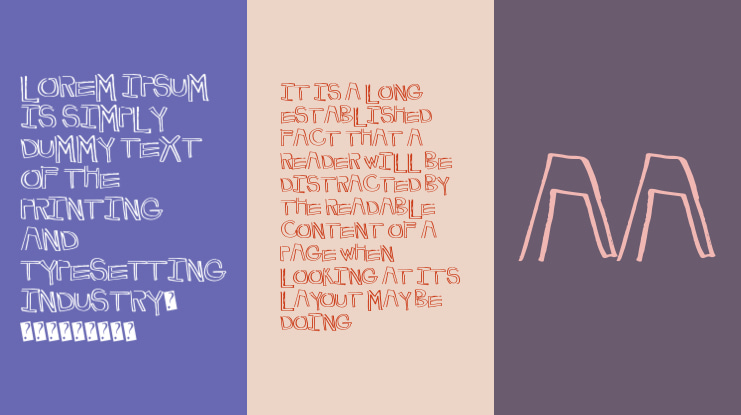 LOREM IPSUM
IS SIMPLY
DUMMY TEXT
OF THE
PRINTING
AND
TYPESETTING
INDUSTRY
IT IS A LONG
ESTABLISHED
FACT THAT A
READER WILL BE
DISTRACTED BY
THE READABLE
CONTENT OF A
PAGE WHEN
LOOKING AT ITS
LAYOUT MAY BE
DOING
AA